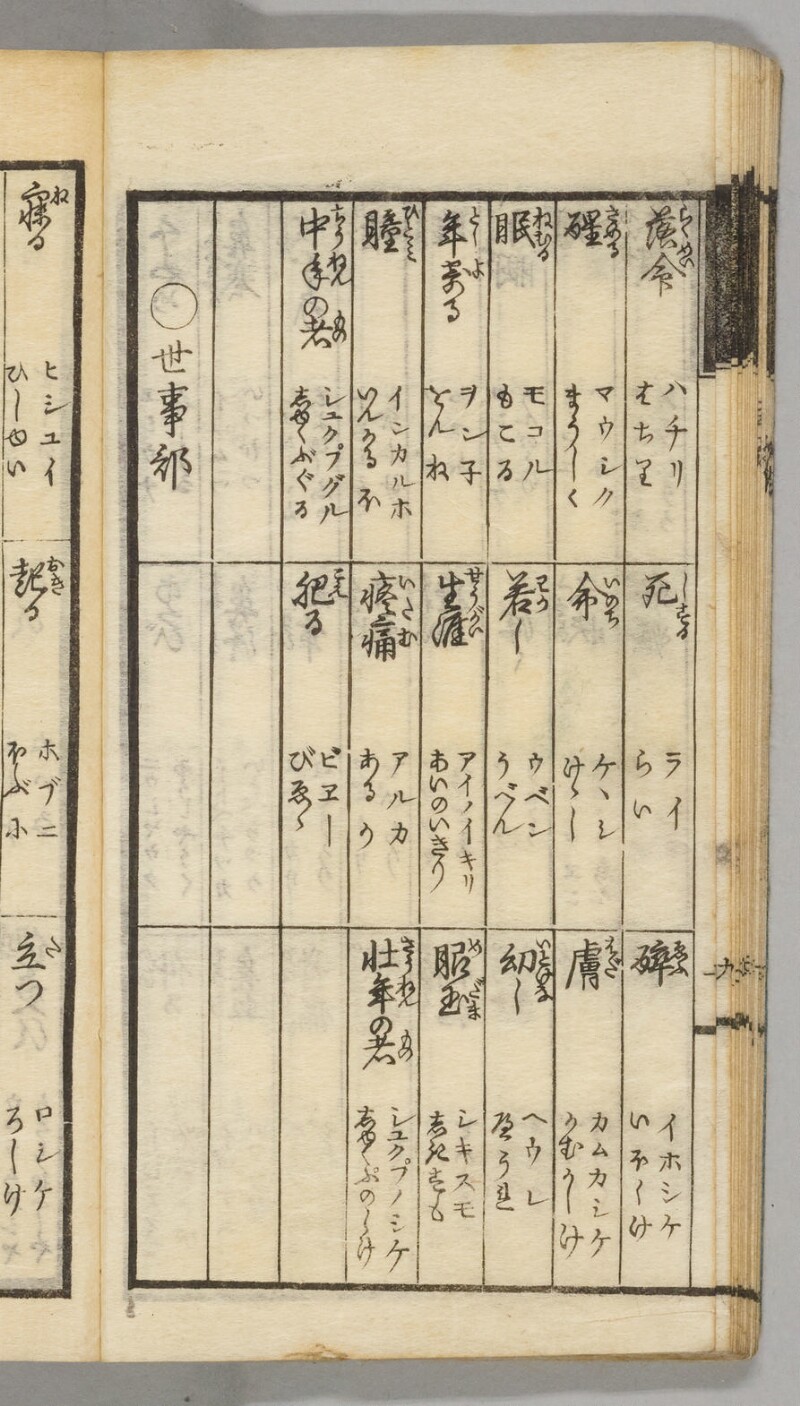 落命 らくめい
ハチリ
はちり
死 しする
ライ
らい
醉 ゑふ
イホシケ
いほしけ
醒 さめる
マウシク
まうしく
命 いのち
ケヽシ
けゝし
膚 はだ
カムカシケ
かむかしけ
眠 ねむる
モコル
もこる
若し わか
ウベン
うべん
幼し いとけな
ヘウレ
へうれ
年寄る とし よ
ヲン子
をんね
生涯 せうがい
アイノイキリ
あいのいきり
眼玉 め だま
シキスモ
しきすも
瞳 ひとみ
インカルホ
いんかるほ
疼痛 いたむ
アルカ
あるか
壮年の者 さうねん もの
シユクプノシケ
しゆくぷのしけ
中年の者 ちうねん もの
シユクプグル
しゆくぶぐる
肥る こえ
ピヱー
びゑゝ
○世事部
九
寐る ね
ヒシユイ
ひしゆい
起る おき
ホブニ
ほぶに
立つ た
ロシケ
ろしけ